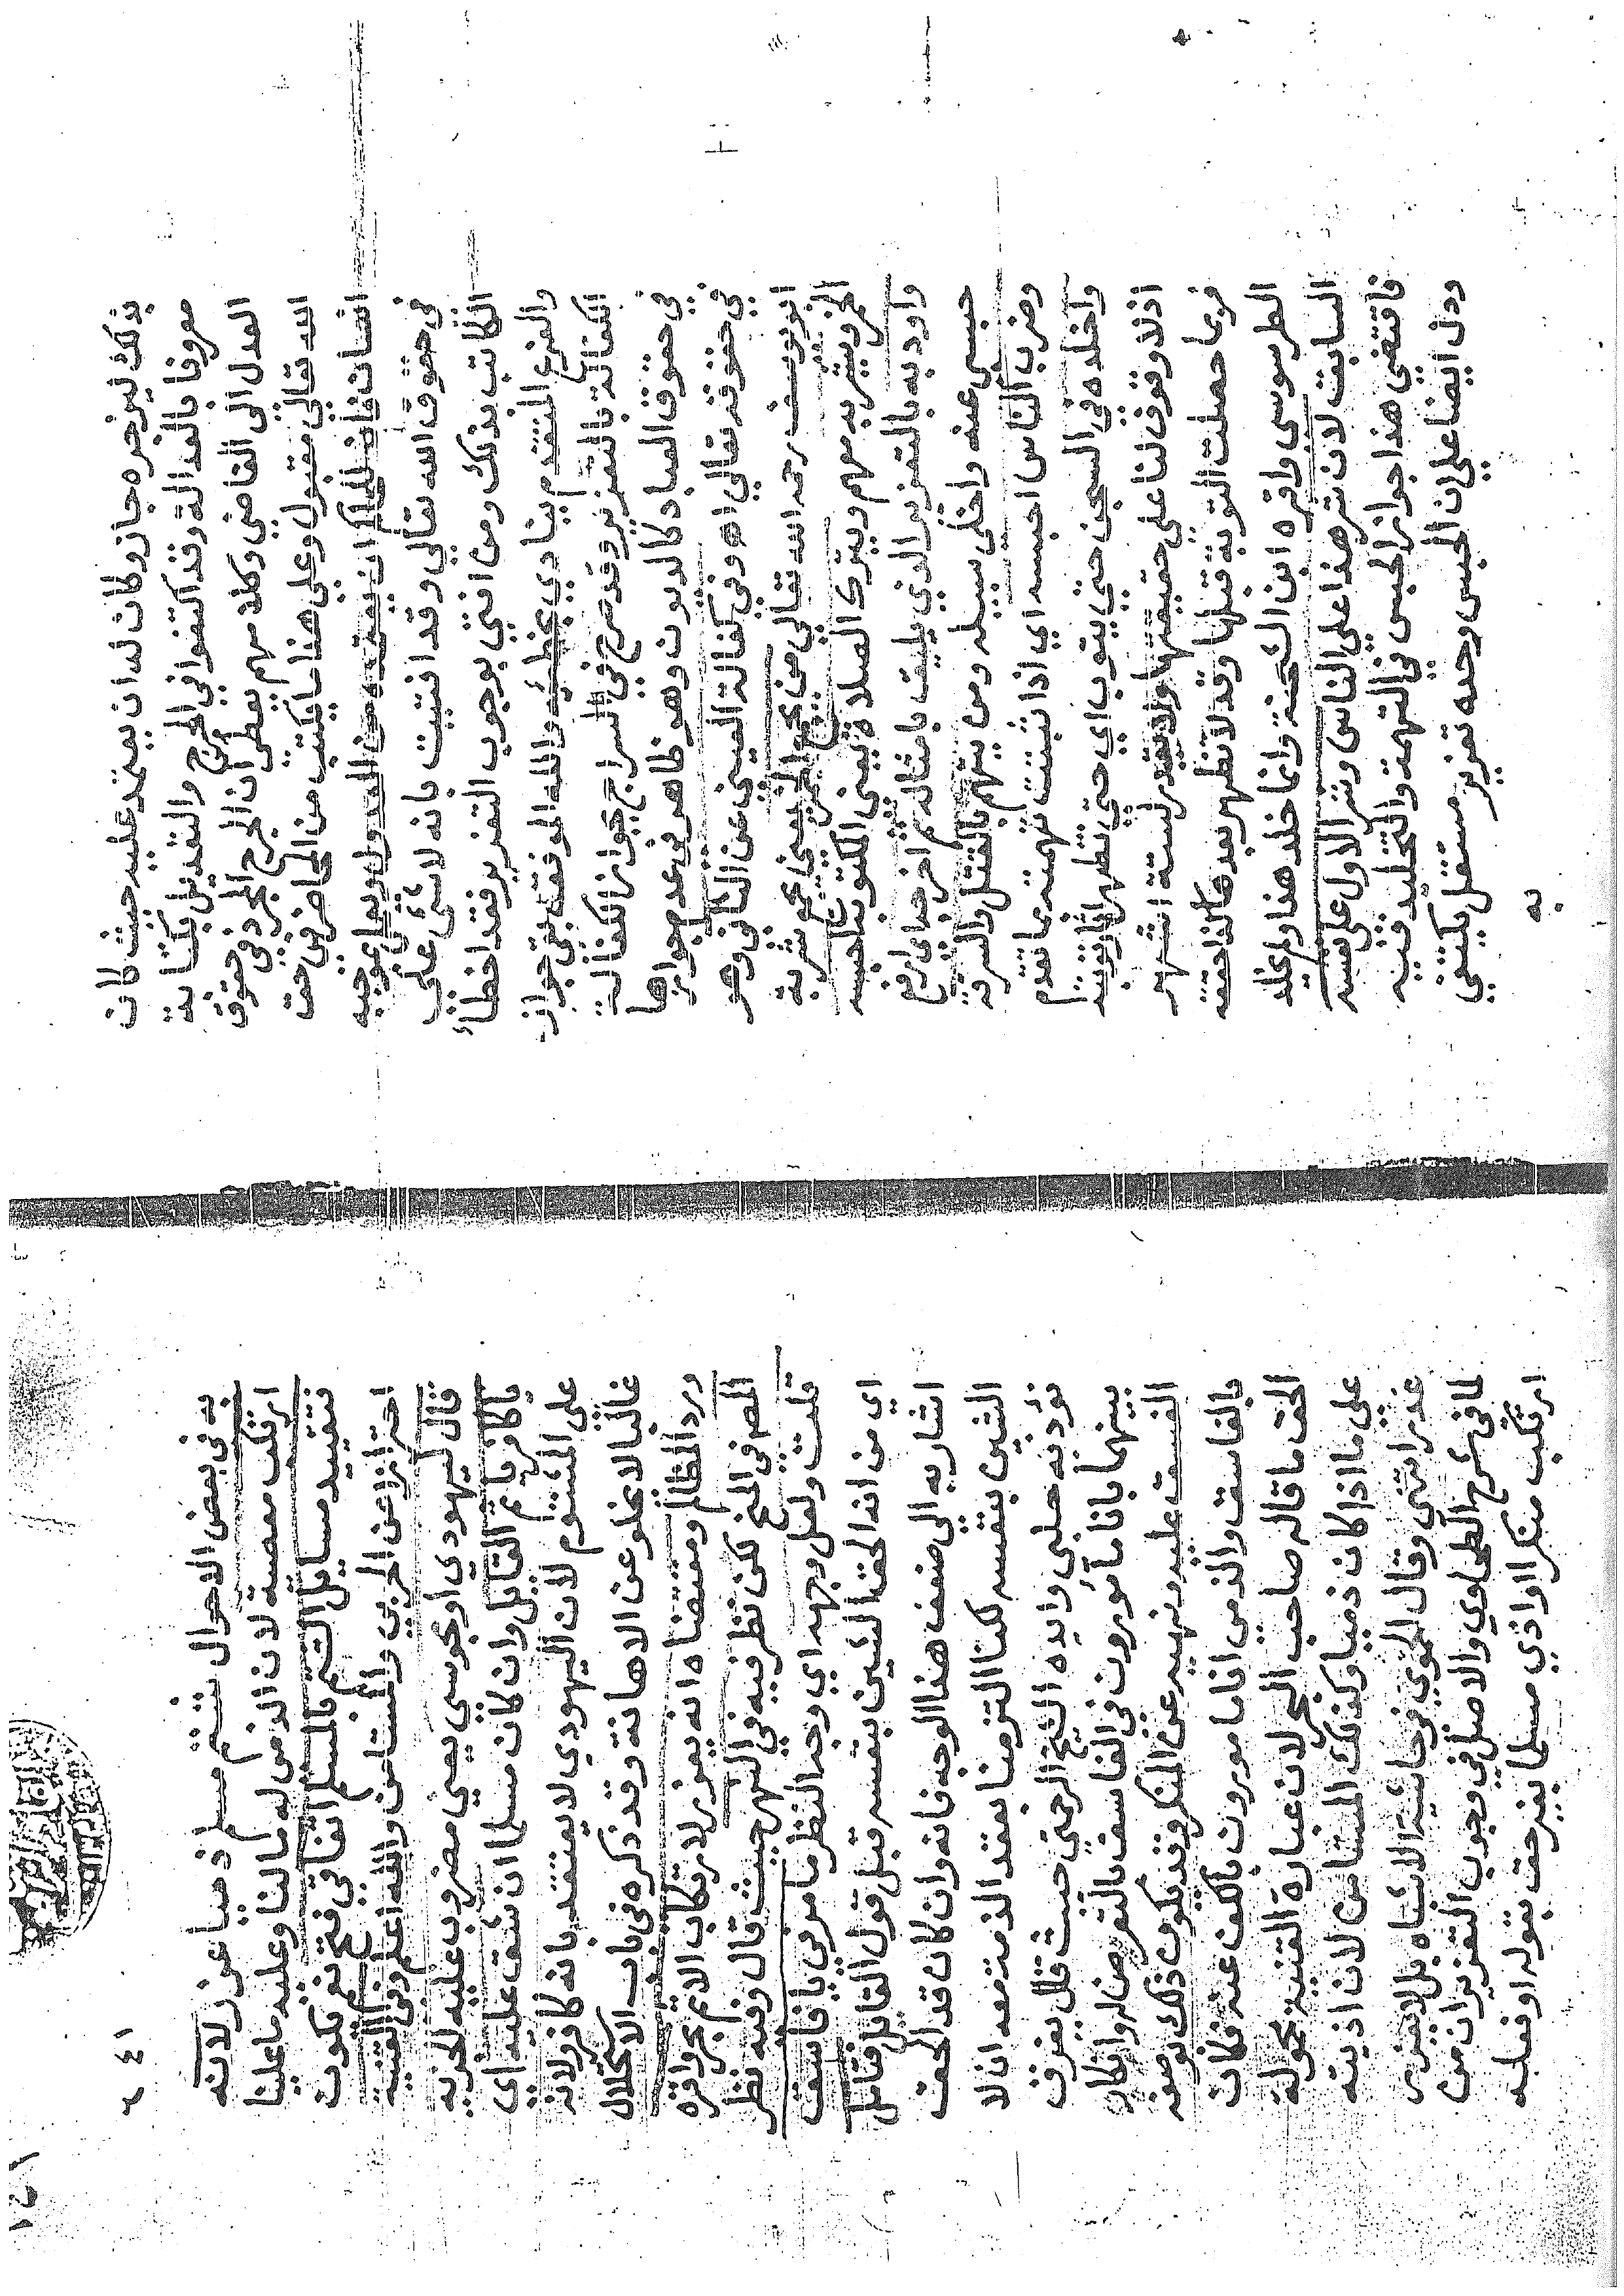 بذلك ليزجره جاز وكان له ان يعتمد عليه حيث كان
معروفا بالعدالة وقد اكتفوا في الجرح والتعديل بكتابة
العدل الى القاضي وكلامهم يعطي ان الجرح المجرد في حقوق
الله تعالى مقبول وعلى هذا ما يكتب من المحاضر في حق
انسان فان للحاكم ان يعتمده من العدول ويعمل بموجبه
في حقوق الله تعالى وقد افتيت بانه لا شئ على
الكاتب بذلك ومن افتى بوجوب التعزير فقد اخطأ
والفرع المتقدم ينادي بخطئه والله الموفق بقي جواز
الكفالة بالتعزير وقد صرح في السراج بجواز الكفالة
في حقوق العباد كالديون وهو ظاهر في عدم جوازها
في حقوقه تعالى اه وفي كفالة العيني عن الثاني وهو
ابو يوسف رحمه الله تعالى من يجمع الخمر يعني يجمع شربة
الخمر ويشربه معهم ويترك الصلاة يعني المكتوبة احبسه
واودبه بالتعزير الذي يليق بامثاله ثم اخرجه اي ارفع
حبسي عنه واخلى سبيله ومن يتهم بالقتل والسرقة
وضرب الناس احبسه اي اذا ثبتت تهمته بما تقدم
واخلده في السجن حتى يتوب اي حتى تظهر اثار توبته
اذ لا وقوف لنا على حقيقتها ولا يقدر بستة اشهر
فربما حصلت التوبة قبلها وقد لا تظهر بعدها كذا حققه
الطرسوسي واقره ابن الشحنة وانما خلد هذا ولم يخلد
السابق لان شر هذا على الناس وشر الاول على نفسه
فاقتضى هذا جواز الحبس في التهمة والتخليد فيه
ودل ايضا على ان الحبس وحده تعزير مستقل يكتفي
به
٢٤١
به في بعض الاحوال شتم مسلم ذميا عزر لانه
ارتكب معصية لان الذمي له ما لنا وعليه ما علينا
فتقييد مسايل الشتم بالمسلم اتفاقي فتح نعم يكون
احترازا عن الحربي والمستامن والله اعلم وفي القنية
قال ليهودي او مجوسي يعني مضروب عليه الجزية
يا كافر ياثم القايل وان كان مسلما ان شق عليه اي
على المشتوم لان اليهودي لا يعتقد بانه كافر لانه
غالبا لا يخلو عن الاهانة وقد ذكره في باب الاستحلال
ورد المظالم ومقتضاه انه يعزر لارتكاب الاثم بحر واقره
المص في المنح لكن نظر فيه في النهر حيث قال وفيه نظر
قلت ولعل وجهه اي وجه النظر ما مر في يا فاسق
اي من انه الحق الشين بنفسه قبل قول القايل فتامل
اشار به الى ضعف هذا الوجه فانه وان كان قد الحق
الشين بنفسه لكنا التزمنا بعقد الذمة معه ان لا
نوذيه حلبي وايده الشيخ الرحمتي حيث قال يفرق
بينهما بانا مأمورون في الفاسق بالتعرض له وانكار
الفسق عليه ونهيه عن المنكر وقد يكون ذلك بوصفه
بالفاسق والذمي انا مامورون بالكف عنه فكان
الحق ما قاله صاحب البحر لان عبارة القنية محمولة
على ما اذا كان ذميا وكذلك المستامن لان اذيته
غدر انتهى وقال الحموي في حاشية الاشباه بل لا يعزر
لما في شرح الطحاوي والاصل في وجوب التعزير ان من
ارتكب منكرا او اذي مسلما بغير حق بقوله او فعله